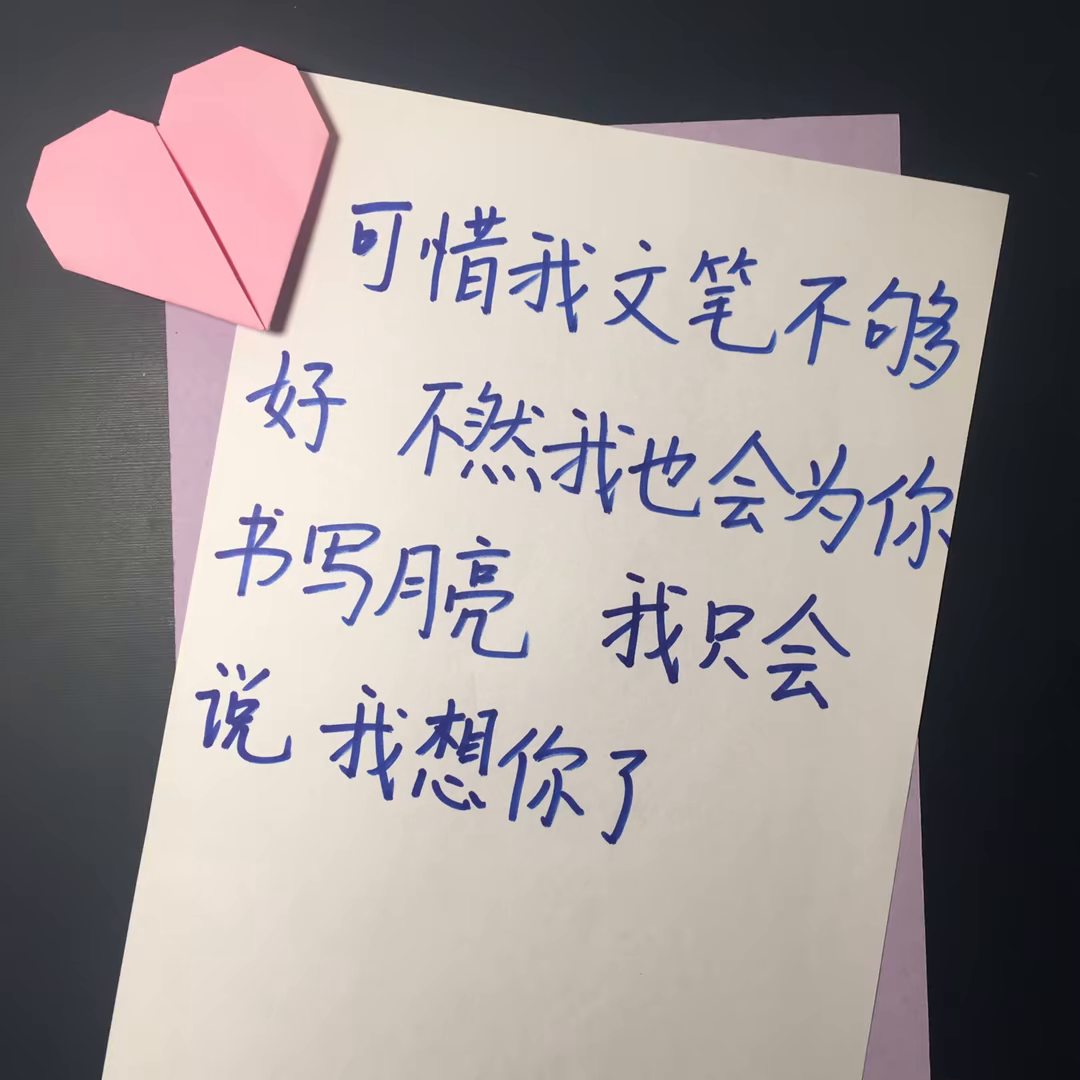 可惜我文笔不够
好 不然我也会为你
书写月亮 我只会
说 我想你了